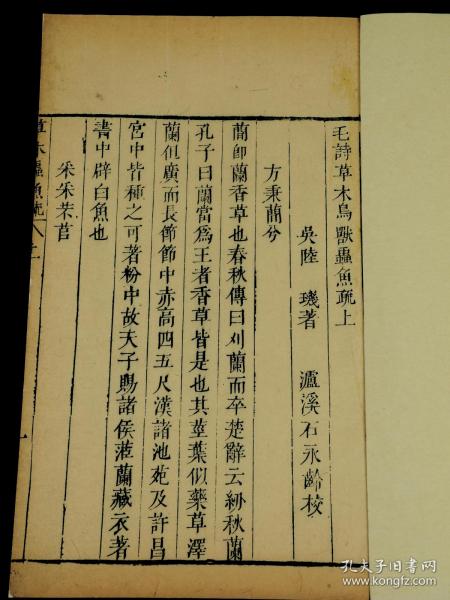 毛詩草木鳥獸蟲魚疏上
吳陸　璣著　瀘溪石永齡校
方秉蕑兮
蕑即蘭香草也春秋傳曰刈蘭而卒楚辭云紉秋蘭
孔子曰蘭當為王者香草皆是也其莖葉似藥草澤
蘭但廣而長節節中赤高四五尺漢諸池苑及許昌
宮中皆種之可著粉中故天子賜諸侯茝蘭藏衣著
書中辟白魚也
采采芣苢
草木蟲魚疏
孔夫子旧书网
www.kongfz.com